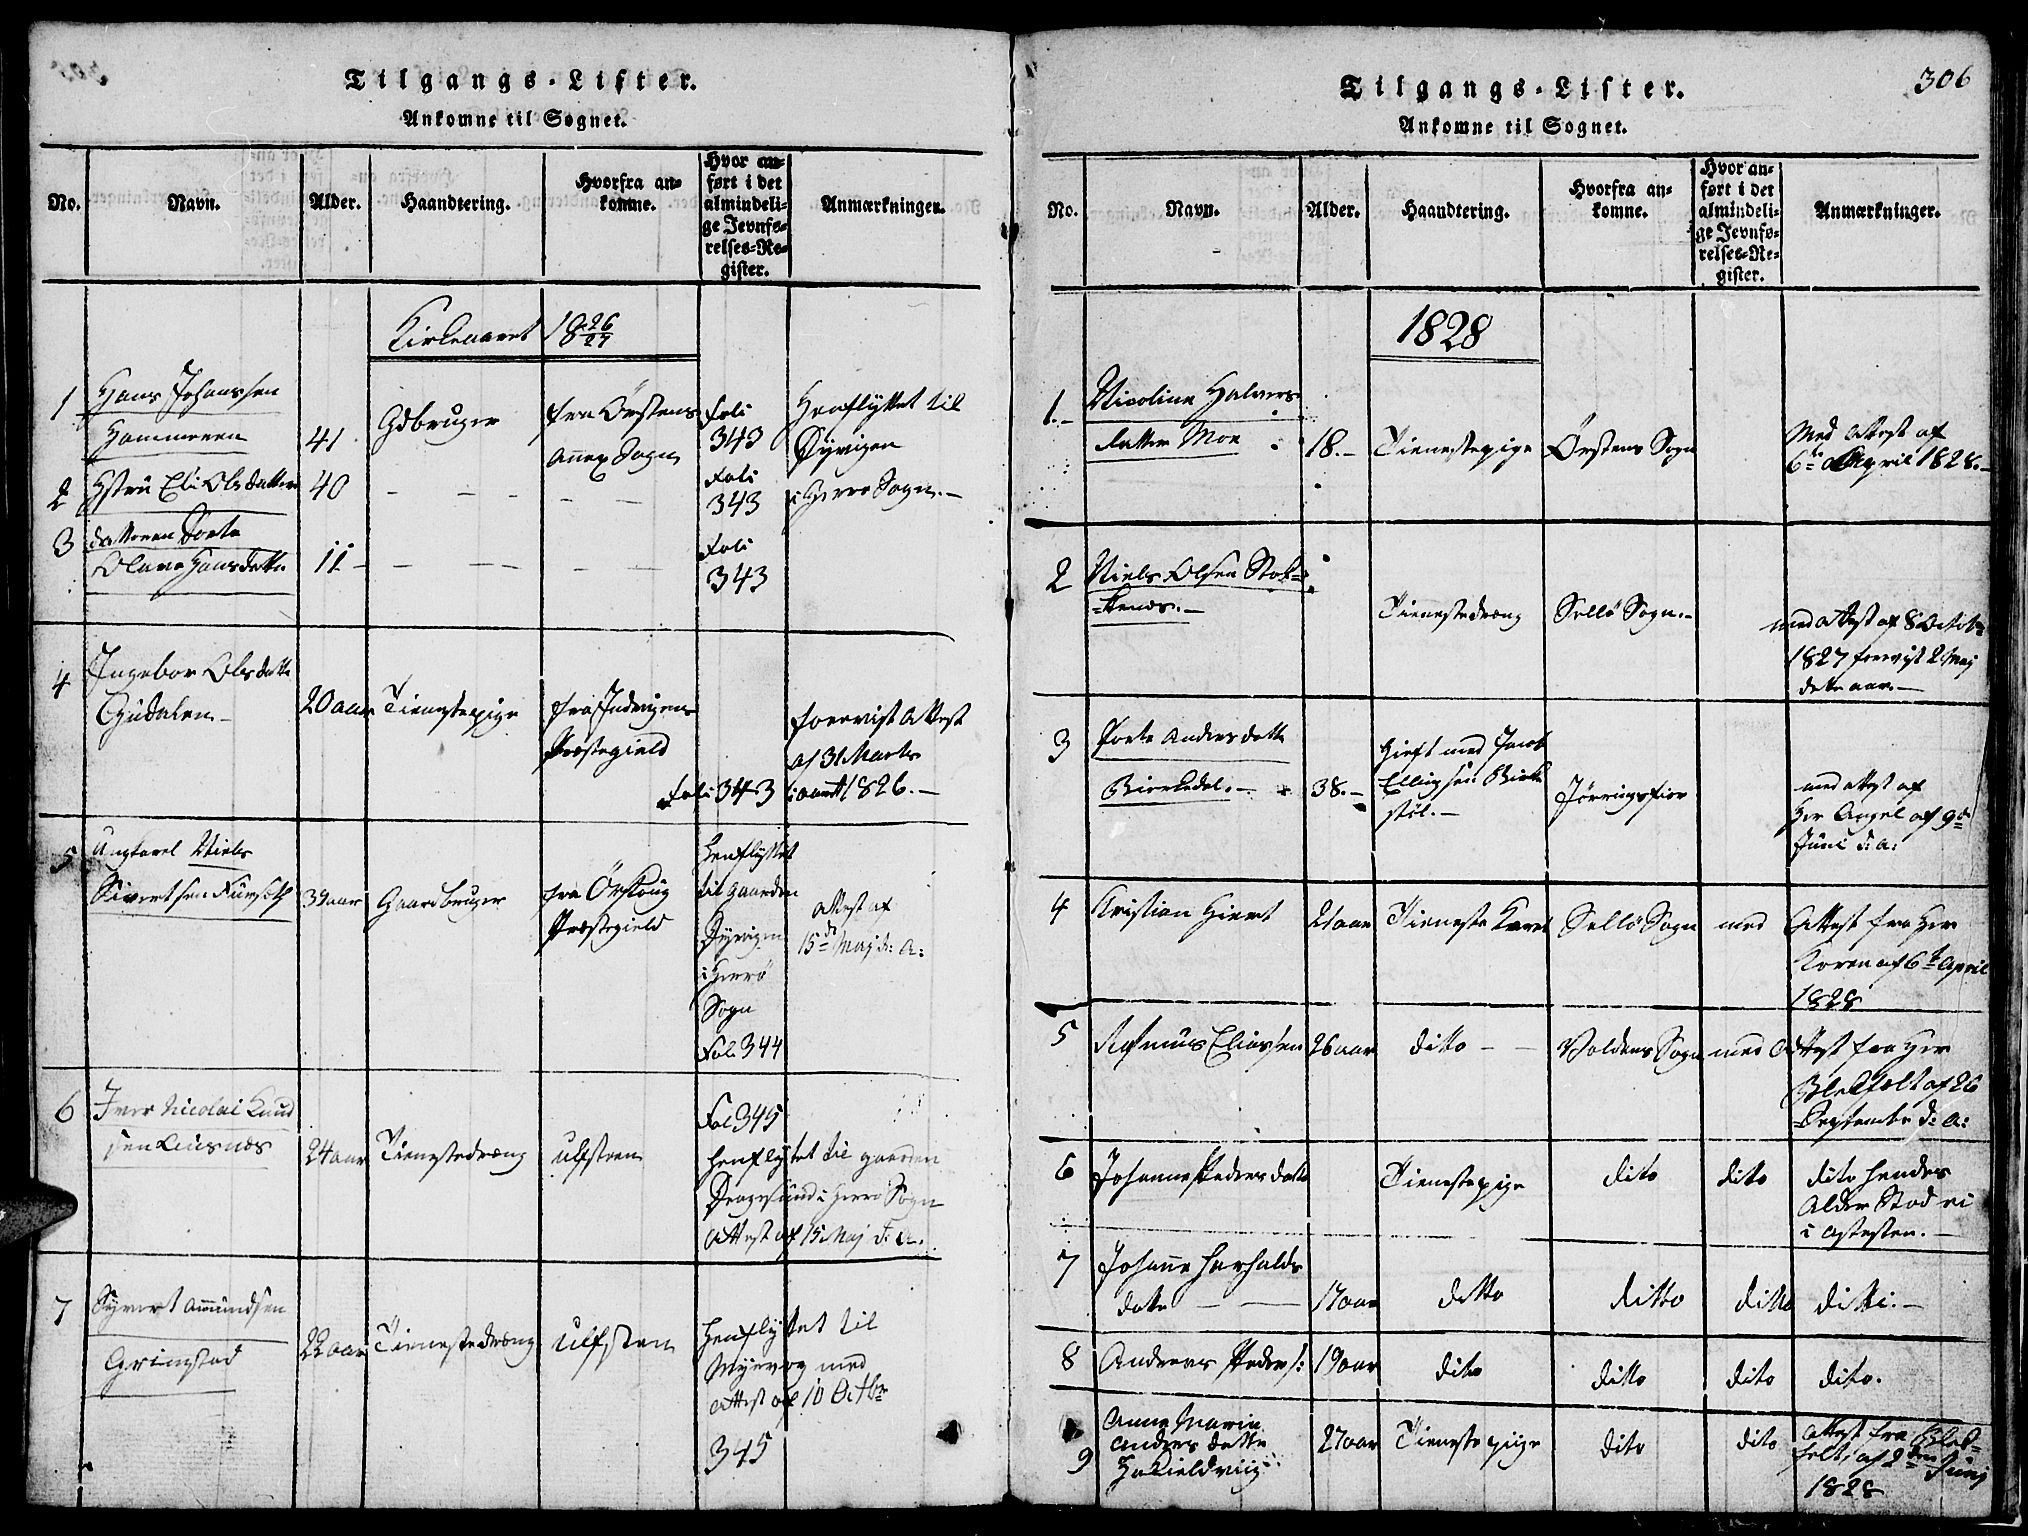 Tilgangs-Lister.
Ankomne til Sognet.
No. Navn. Alder. Haandtering. Hvorfra ankomne. Hvor anført i det almindelige Jevnførelses-Register. Anmærkninger.
Kirkeaaret 18 26/27
1 Hans Johanssen
Hammeren 41 Gdbruger fra Ørstens
Annex Sogn
Foli
343
Henflyttet til
Dyvigen
i Herrø Sogn.
2 Hstru Eli Olsdatter 40 - - - - - -
Foli
343
3 datteren Dorte
Olava Hansdatter 11 - - - - - -
Foli
343
4 Ingebor Olsdatter
20 aar Tienestepige fra Indvigens
Præstegield
Foli 343
foervist Attest
af 31 Marts
1826.
5 Ungkarl Niels
Sivertsen
Gaardbruger fra Ørskoug
Præstegield
Henflyttet
til gaarden
Dyvigen
i Herrø
Sogn
Foli 344
Attest af
15de Maj d: A:
6 Iver Nicolai Knud
sen
24 aar Tienestedreng Ulfsten
Fol 345
henflyttet til gaarden
Dragesund i Herrø Sogn
Attest af 15 Maj d: A.
7 Syvert Amundsen
Grimstad
22 aar Tienestedreng Ulfsten
Henflyttet til
Myrvog med
Attest af 10 Octbr
345
306
Tilgangs-Lister.
Ankomne til Sognet.
No. Navn. Alder. Haandtering. Hvorfra ankomne. Hvor anført i det almindelige Jevnførelses-Register. Anmærkninger.
1828
1.- Nicoline Halvors
datter Moe 18.- Tienestepige Ørstens Sogn
Med Attest af
6te April 1828.-
2 Niels Olsen
Tienestedreng Sellø Sogn.-
med Attest af 8 Octob
1827 forevist 2 Maj
dette aar.-
3 Andersdatter
Birkedal.- 38.-
Gieft med Jacob
Ellingsen
Jørringfior
med Attest af
Her Angel af 9de
Juni d: A:
4 Kristian Giert 21 aar Tieneste Karl Sellø Sogn med Attest fra Her
Koren af 6te April
1828
5 Rasmus Eliassen 26 aar ditto - - Voldens Sogn med Attest fra Her
af 26
September d: A:
6 Johanne Pedersdatter Tienestepige dito dito dito hendes
Alder Stod ei
i attesten.-
7 Johanne
datter - - 17 aar ditto ditto ditto ditto.-
8 Andreas Peders: 19 aar dito ditto dito dito.
9 Anne Maria
Andersdatter
27 aar Tienestepige dito dito Attest fra
af 2den Junij
1828